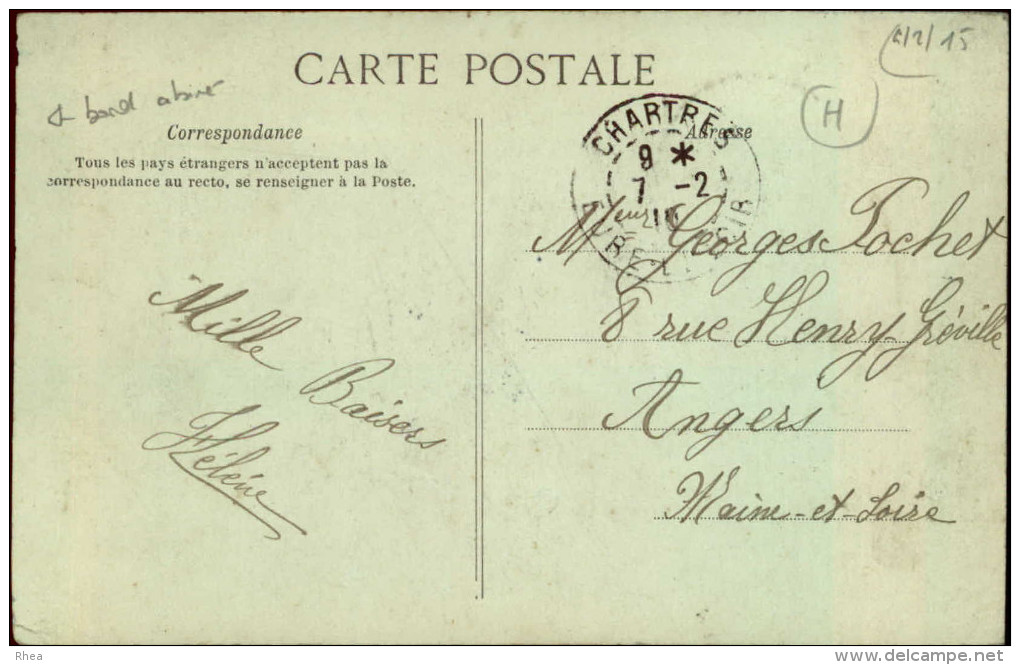 6/2/15
CARTE POSTALE
H
bord abimé
Correspondance
Adresse
Tous les pays étrangers n'acceptent pas la
correspondance au recto, se renseigner à la Poste.
CHARTRES
9 *
7 -2
Mille
Baisers
Hélène
Mr Georges Pochet
8 rue Henry Gréville
Angers
Maine-et-Loire
Rhea
www.delcampe.net